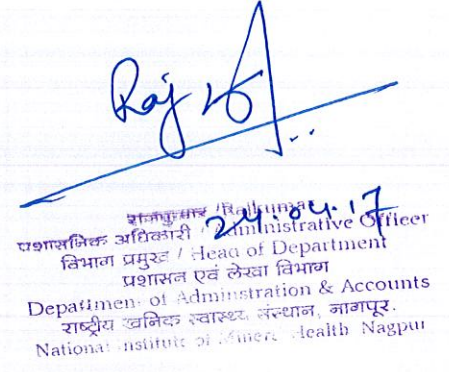 राजकुमार / Rajkumar
24.04.17
प्रशासनिक अधिकारी / Administrative Officer
विभाग प्रमुख / Head of Department
प्रशासन एवं लेखा विभाग
Department of Adminstration & Accounts
राष्ट्रीय खनिक स्वास्थ्य संस्थान, नागपूर.
National Institute of Miners Health Nagpur